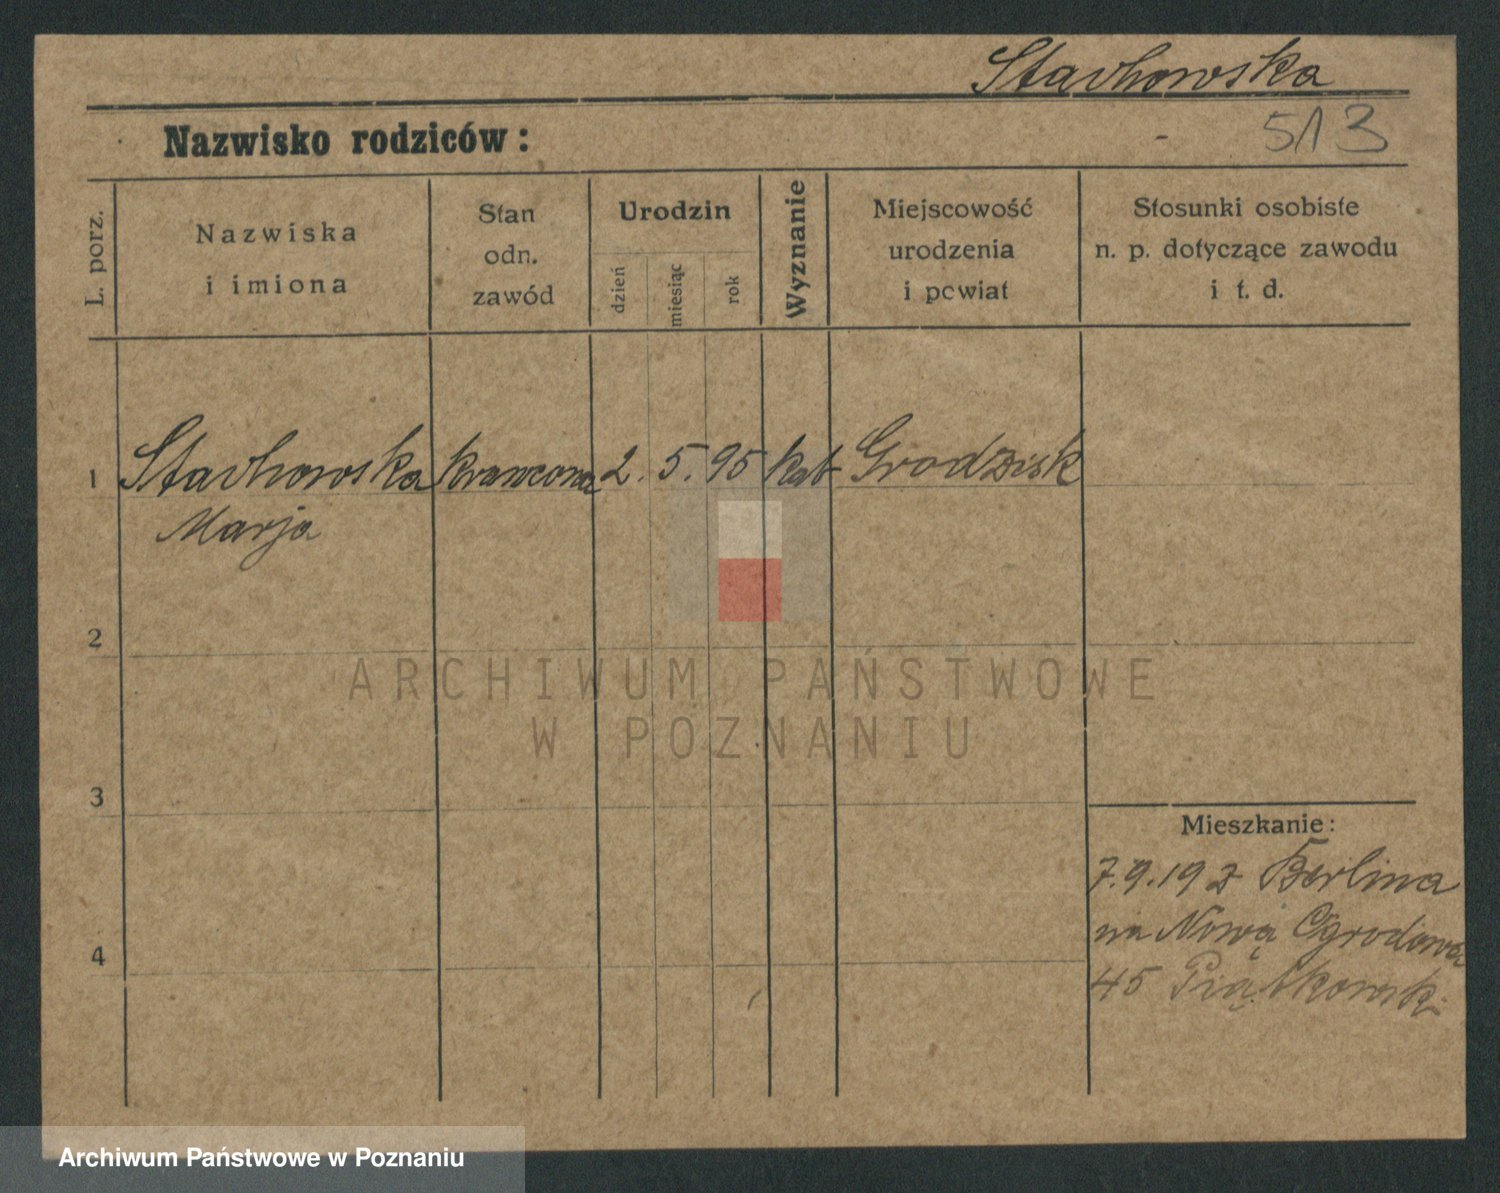 Stachowska
Nazwisko rodziców:
513
L. porz.
Nazwiska
i imiona
Stan
odn.
zawód
Urodzin
dzień
miesiąc
rok
Wyznanie
Miejscowość
urodzenia
i powiat
Stosunki osobiste
n. p. dotyczące zawodu
i t. d.
1 Stachowska krawcowa 2. 5. 95 kat Grodzisk
Marja
2
ARCHIWUM PAŃSTWOWE
W POZNANIU
3
Mieszkanie:
7.9.19 z Berlina
na Nową Ogrodową
4
45 Piątkowski
Archiwum Państwowe w Poznaniu